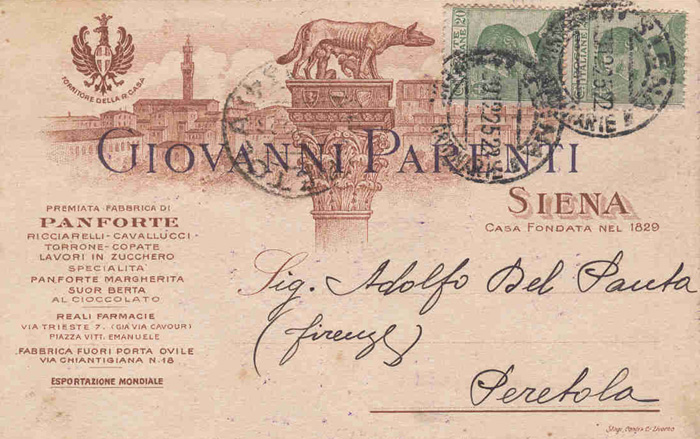 FORNITORE DELLA R. CASA
GIOVANNI PARENTI
SIENA
CASA FONDATA NEL 1829
PREMIATA FABBRICA DI
PANFORTE
RICCIARELLI - CAVALLUCCI
TORRONE - COPATE
LAVORI IN ZUCCHERO
SPECIALITÀ
PANFORTE MARGHERITA
SUOR BERTA
AL CIOCCOLATO
REALI FARMACIE
VIA TRIESTE 7. (GIÀ VIA CAVOUR)
PIAZZA VITT. EMANUELE
FABBRICA FUORI PORTA OVILE
VIA CHIANTIGIANA N. 18
ESPORTAZIONE MONDIALE
Sig. Adolfo Del Panta
(Firenze)
Peretola